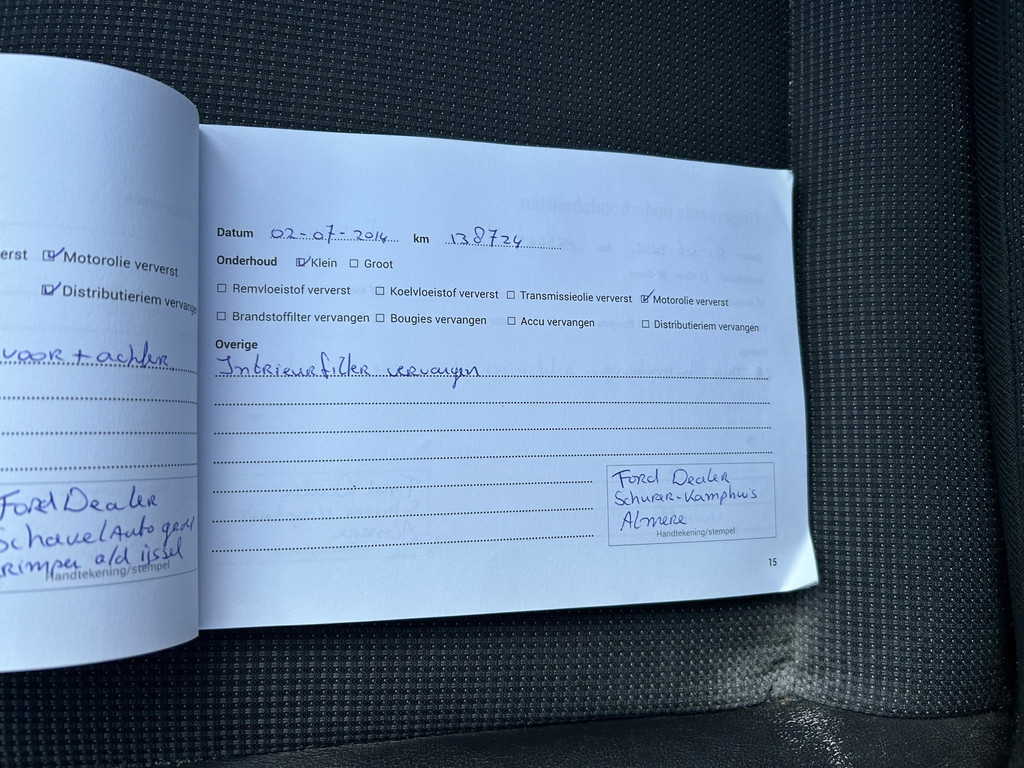 erst ☑ Motorolie ververst
☑ Distributieriem vervange
voor + achter
Ford Dealer
Schavel Auto groep
Krimpen a/d ijssel
Handtekening/stempel
Datum 02-07-2014 km 138724
Onderhoud ☑ Klein ☐ Groot
☐ Remvloeistof ververst ☐ Koelvloeistof ververst ☐ Transmissieolie ververst ☑ Motorolie ververst
☐ Brandstoffilter vervangen ☐ Bougies vervangen ☐ Accu vervangen ☐ Distributieriem vervangen
Overige
Intrieurfilter vervangen
Ford Dealer
Schurer-Kamphuis
Almere
Handtekening/stempel
15